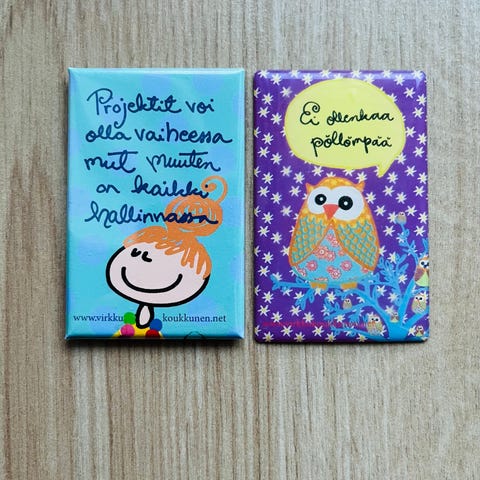 Projektit voi
olla vaiheessa
mut muuten
on kaikki
hallinnassa
www.virkku koukkunen.net
Ei ollenkaa
pöllömpää